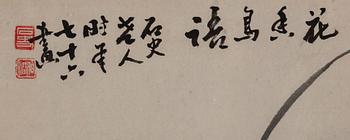 花香鳥語
石史
老人
時年
七十六